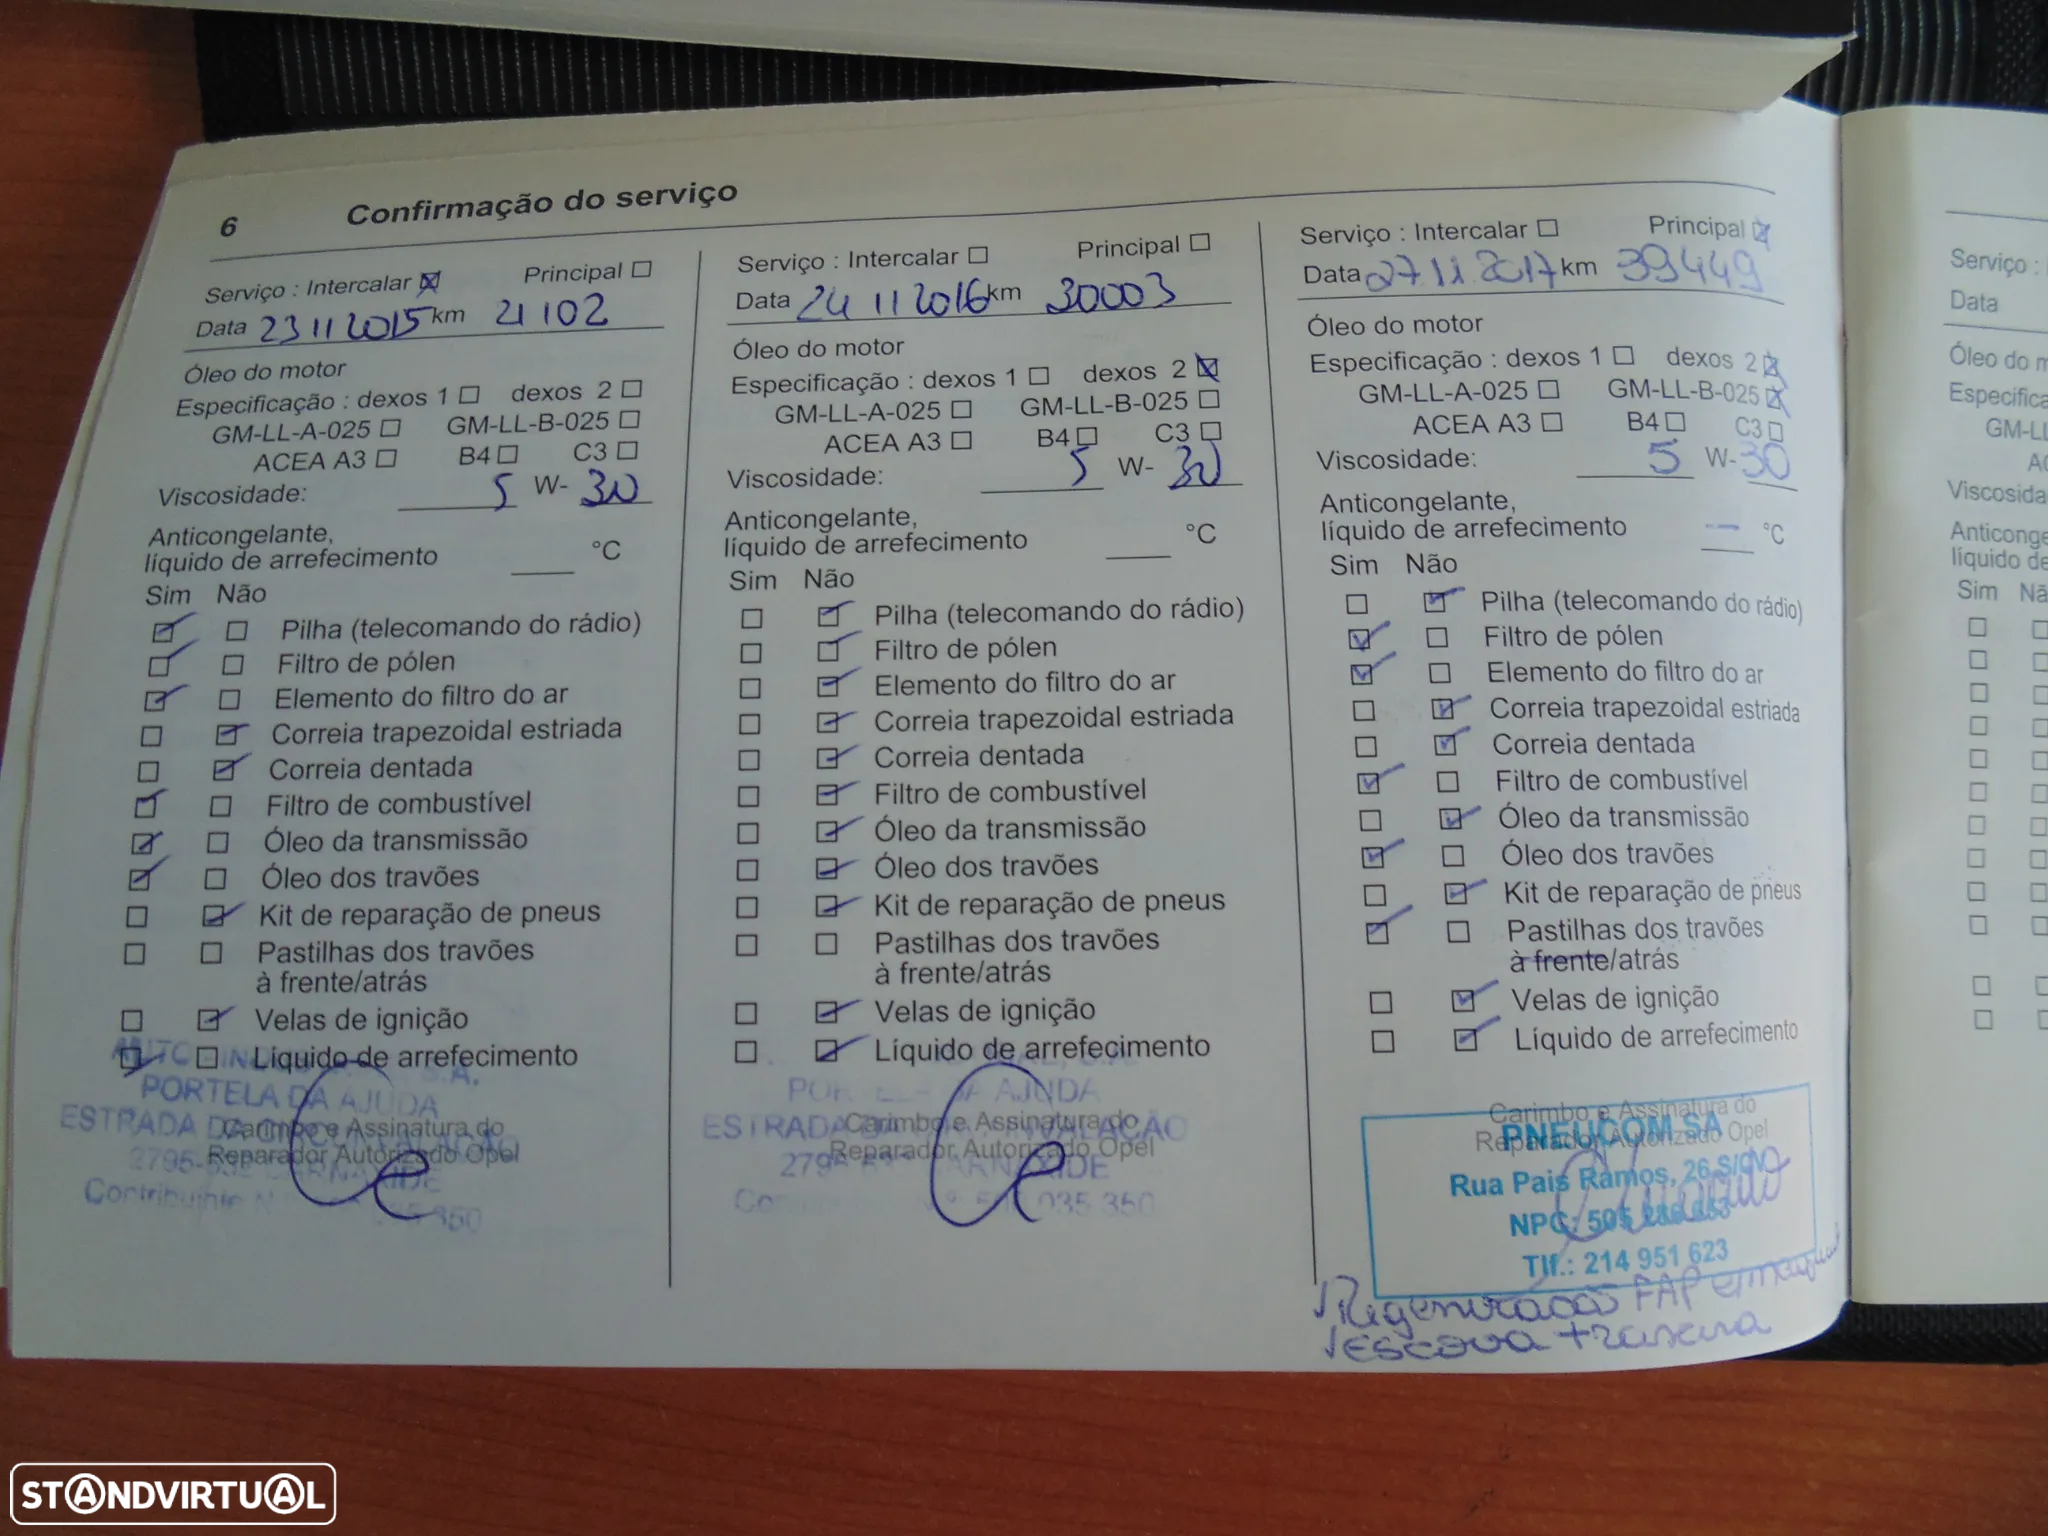 6 Confirmação do serviço
Serviço : Intercalar Principal
Data 23 11 2015 km 21102
Óleo do motor
Especificação : dexos 1 dexos 2
GM-LL-A-025 GM-LL-B-025
ACEA A3 B4 C3
Viscosidade: 5 W-30
Anticongelante,
líquido de arrefecimento °C
Sim Não
Pilha (telecomando do rádio)
Filtro de pólen
Elemento do filtro do ar
Correia trapezoidal estriada
Correia dentada
Filtro de combustível
Óleo da transmissão
Óleo dos travões
Kit de reparação de pneus
Pastilhas dos travões
à frente/atrás
Velas de ignição
Líquido de arrefecimento
S.A.
PORTELA DA AJUDA
ESTRADA DA
Carimbo e Assinatura do
Reparador Autorizado Opel
Contribuinte 350
Serviço : Intercalar Principal
Data 24 11 2016 km 30003
Óleo do motor
Especificação : dexos 1 dexos 2
GM-LL-A-025 GM-LL-B-025
ACEA A3 B4 C3
Viscosidade: 5 W-30
Anticongelante,
líquido de arrefecimento °C
Sim Não
Pilha (telecomando do rádio)
Filtro de pólen
Elemento do filtro do ar
Correia trapezoidal estriada
Correia dentada
Filtro de combustível
Óleo da transmissão
Óleo dos travões
Kit de reparação de pneus
Pastilhas dos travões
à frente/atrás
Velas de ignição
Líquido de arrefecimento
AJUDA
ESTRADA
Carimbo e Assinatura do
Reparador Autorizado Opel
035 350
Serviço : Intercalar Principal
Data 27.11.2017 km 39449
Óleo do motor
Especificação : dexos 1 dexos 2
GM-LL-A-025 GM-LL-B-025
ACEA A3 B4 C3
Viscosidade: 5 W-30
Anticongelante,
líquido de arrefecimento — °C
Sim Não
Pilha (telecomando do rádio)
Filtro de pólen
Elemento do filtro do ar
Correia trapezoidal estriada
Correia dentada
Filtro de combustível
Óleo da transmissão
Óleo dos travões
Kit de reparação de pneus
Pastilhas dos travões
à frente/atrás
Velas de ignição
Líquido de arrefecimento
Carimbo e Assinatura do
Reparador Autorizado Opel
PNEUCOM SA
Rua Pais Ramos, 26 S/CV
NPC: 505
Tlf.: 214 951 623
Regeneração FAP
escova traseira
Serviço :
Data
Óleo do m
Especifica
GM-LL
AC
Viscosida
Anticonge
líquido de
Sim Nã
STANDVIRTUAL